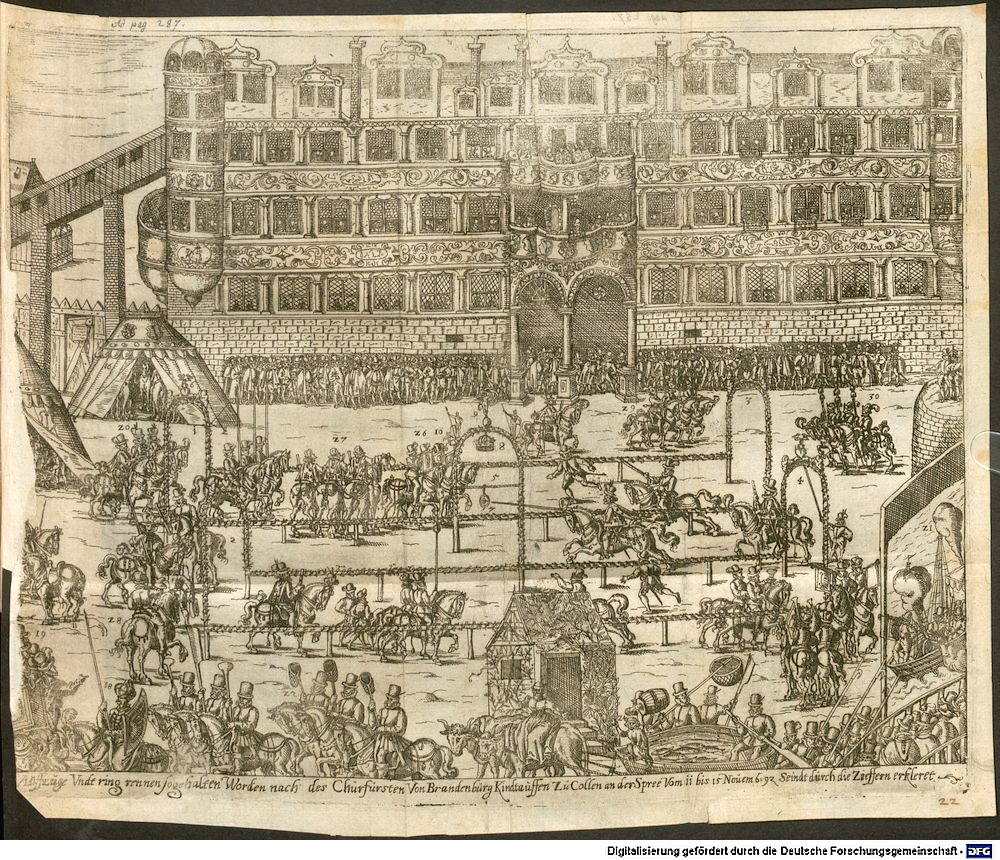 Ad pag. 287.
16
3
29
30
1
20
27
26 10
9
8
5
4
2
21
28
11
19
18
Auffzüge Vndt ring rennen so gehalten Worden nach des Churfürsten Von Brandenburg Kindtauffen Zu Collen an der Spree Vom 11 bis 15 Nouem 6.92 Seindt durch die Zieffern erkleret
22
Digitalisierung gefördert durch die Deutsche Forschungsgemeinschaft - DFG